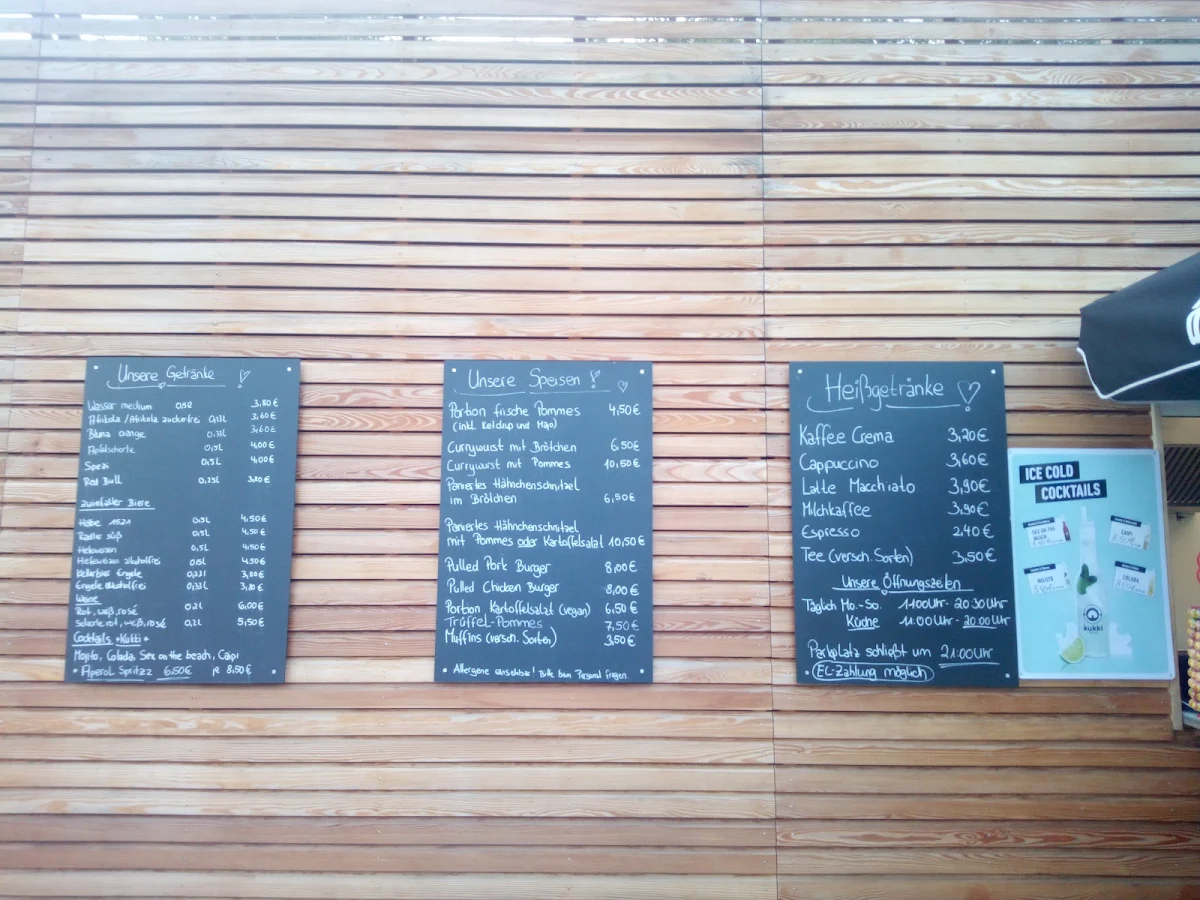 Unsere Getränke
Wasser medium 0,5l 3,80€
Afrikola/Afrikola zuckerfrei 0,33l 3,60€
Bluna orange 0,33l 3,60€
Apfelschorle 0,5l 4,00€
Spezi 0,5l 4,00€
Red Bull 0,25l
Biere
1521 0,5L 4,50€
Radler süß 0,5l 4,50€
Hefeweizen 0,5l 4,50€
Hefeweizen alkoholfrei 0,5l 4,50€
Kellerbier Engele 0,33l 3,80€
Engele alkoholfrei 0,33l 3,80€
Weine
Rot, weiß, rosé 0,2l 6,00€
Schorle rot, weiß, rosé 0,2l 5,50€
Cocktails
Mojito, Colada, Sex on the beach, Caipi
Aperol Spritzz 6,50€ je 8,50€
Unsere Speisen
Portion frische Pommes 4,50€
(inkl. Ketchup und Mayo)
Currywurst mit Brötchen 6,50€
Currywurst mit Pommes 10,50€
Paniertes Hähnchenschnitzel
im Brötchen 6,50€
Paniertes Hähnchenschnitzel
mit Pommes oder Kartoffelsalat 10,50€
Pulled Pork Burger 8,00€
Pulled Chicken Burger 8,00€
Portion Kartoffelsalat (vegan) 6,50€
Trüffel-Pommes 7,50€
Muffins (versch. Sorten) 3,50€
Allergene einsehbar! Bitte beim Personal fragen.
Heißgetränke
Kaffee Crema 3,20€
Cappuccino 3,60€
Latte Macchiato 3,90€
Milchkaffee 3,90€
Espresso 2,40€
Tee (versch. Sorten) 3,50€
Unsere Öffnungszeiten
Täglich Mo.-So. 11:00Uhr-20:30Uhr
Küche 11:00Uhr-20:00Uhr
Parkplatz schließt um 21:00Uhr
EC-Zahlung möglich
ICE COLD
COCKTAILS
SEX ON THE
BEACH
CAIPI
MOJITO
COLADA
kukki